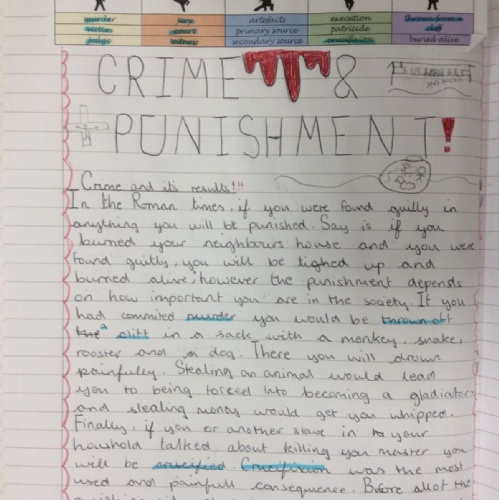 murder jury artefacts execution thrown from a
victim court primary source patricide cliff
judge witness secondary source crucifixion buried alive
CRIME &
PUNISHMENT!
Crime and its results!!"
In the Roman times, if you were found guilly in
anything you will be punished. Say is if you
burned your neighbours house and you were
found guilty, you will be tighed up and
burned alive; however the punishment depends
on how important you are in the society. If you
had commited murder you would be thrown off
the a cliff in a sack with a monkey, snake,
rooster and a dog. There you will drown
painfuley. Stealing an animal would lead
you to being forced into becoming a gladiator
and stealing money would get you whipped.
Finally, if you or another slave in to your
houshold talked about killing you master you
will be crucified. Crucifixion was the most
used and painfull consequence. Before all of the